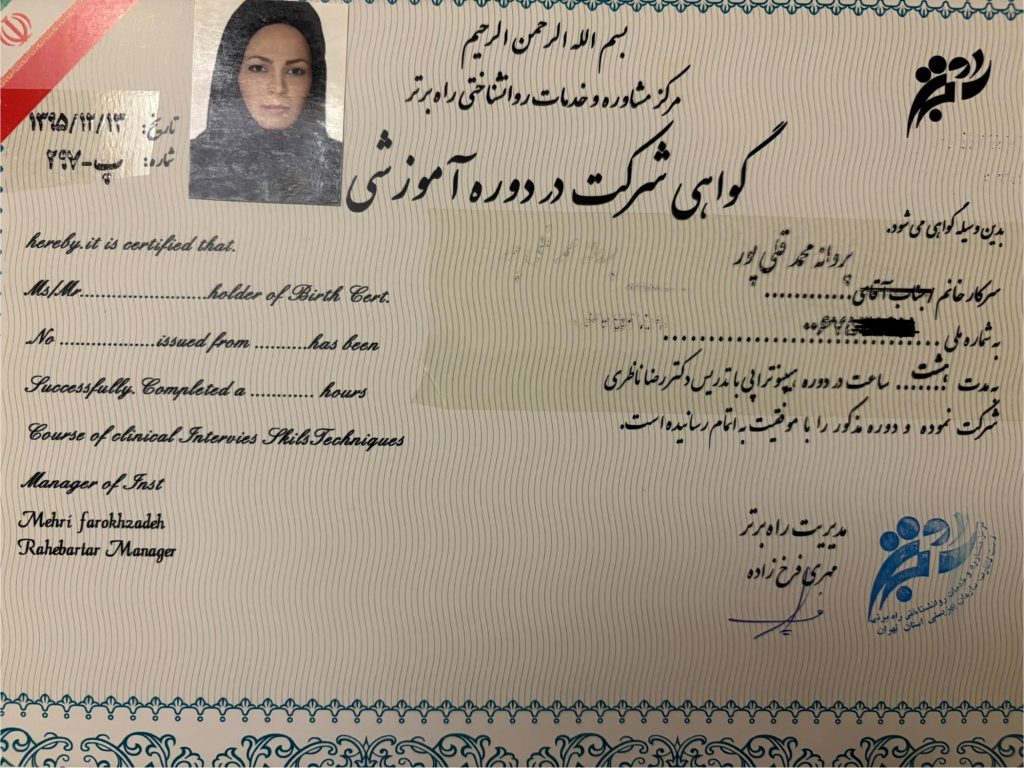 بسم الله الرحمن الرحیم
مرکز مشاوره و خدمات روانشناختی راه برتر
گواهی شرکت در دوره آموزشی
تاریخ: ۱۳۹۵/۱۲/۱۳
شماره: پ-۲۹۸
بدین وسیله گواهی می شود.
پروانه محمد قلی پور
سرکار خانم / جناب آقای............
به شماره ملی ................................
به مدت هشت ساعت در دوره هیپنوتراپی با تدریس دکتر رضا ناظری
شرکت نموده و دوره مذکور را با موفقیت به اتمام رسانیده است.
مدیریت راه برتر
مهری فرخ زاده
hereby.it is certified that.
Ms/Mr......................holder of Birth Cert.
No .................issued from .........has been
Successfully. Completed a ............ hours
Course of clinical Intervies SkilsTechniques
Manager of Inst
Mehri farokhzadeh
Rahebartar Manager
راه برتر
مرکز مشاوره و خدمات روانشناختی راه برتر
سازمان بهزیستی استان تهران